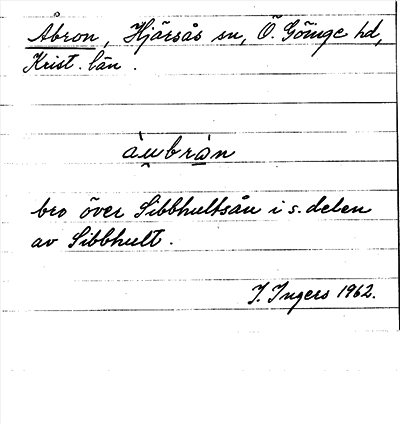 Åbron, Hjärsås sn, Ö. Göinge hd,
Krist. län.
àu̯brån
bro över Sibbhultsån i s. delen
av Sibbhult.
I. Ingers 1962.